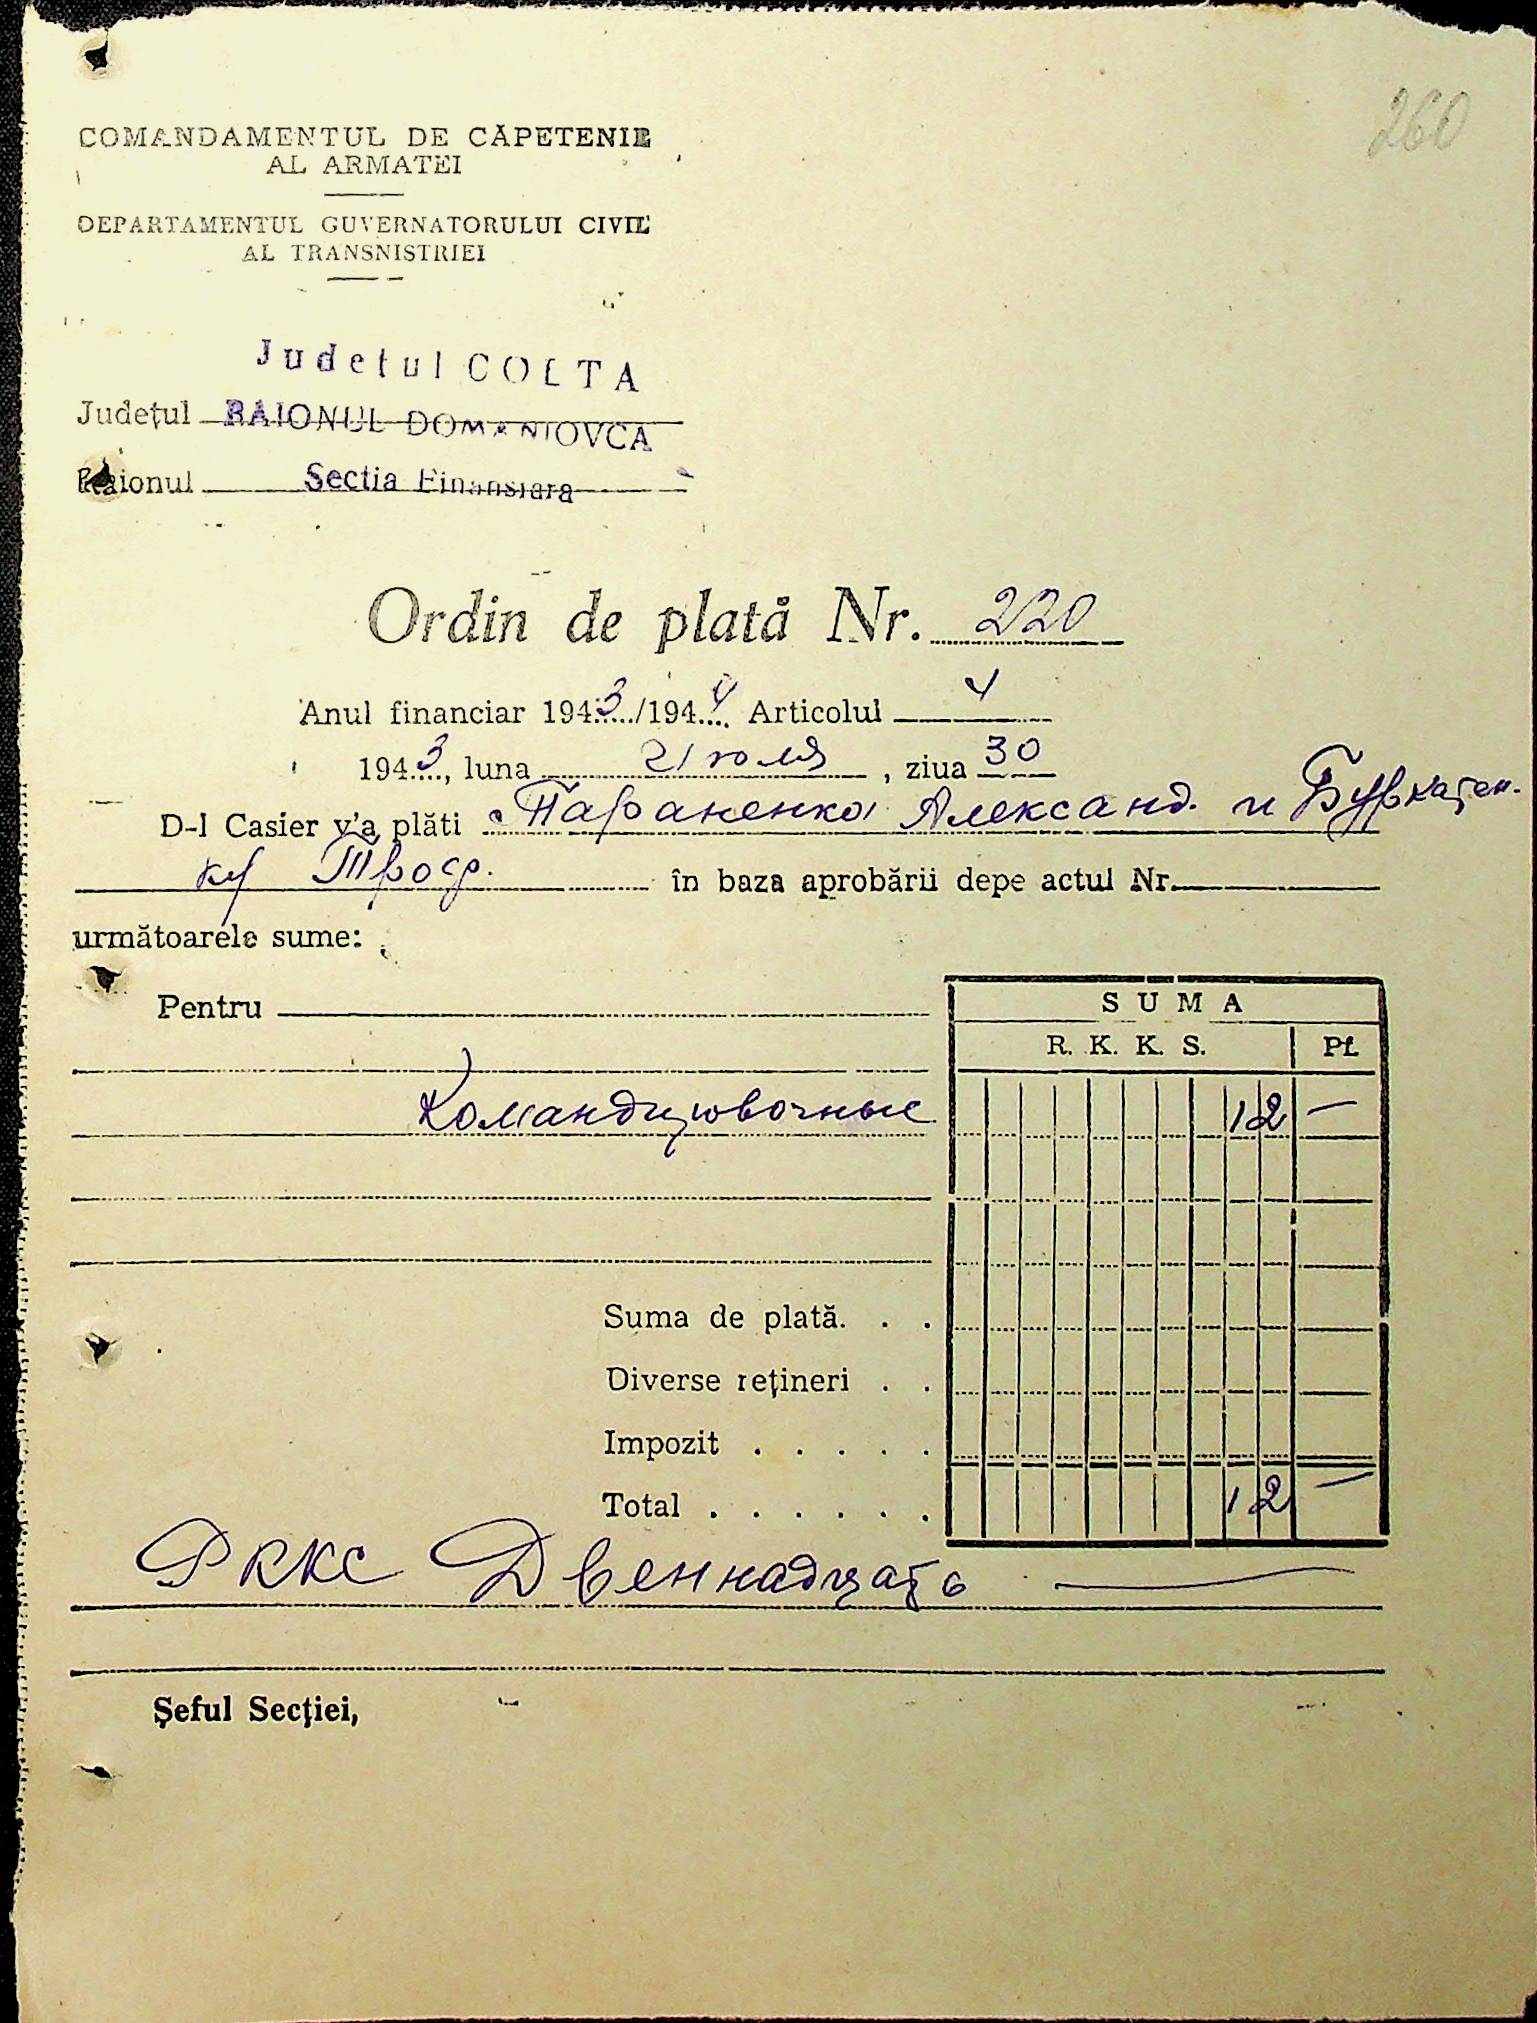 260
COMANDAMENTUL DE CĂPETENIE
AL ARMATEI
DEPARTAMENTUL GUVERNATORULUI CIVIL
AL TRANSNISTRIEI
Judetul GOLTA
Județul RAIONUL DOMANIOVCA
Raionul Sectia Finansiara
Ordin de plată Nr. 220
Anul financiar 1943/1944 Articolul 4
1943, luna Июля, ziua 30
D-l Casier v'a plăti Тараненко Александ. и Буркатен-
ку Троф. în baza aprobării depe actul Nr.
următoarele sume:
Pentru
SUMA
R. K. K. S. Pf.
Командировочные 12 —
Suma de plată. . .
Diverse rețineri . .
Impozit . . . . .
Total . . . . . . 12 —
РККС Двеннадцать —
Șeful Secției,